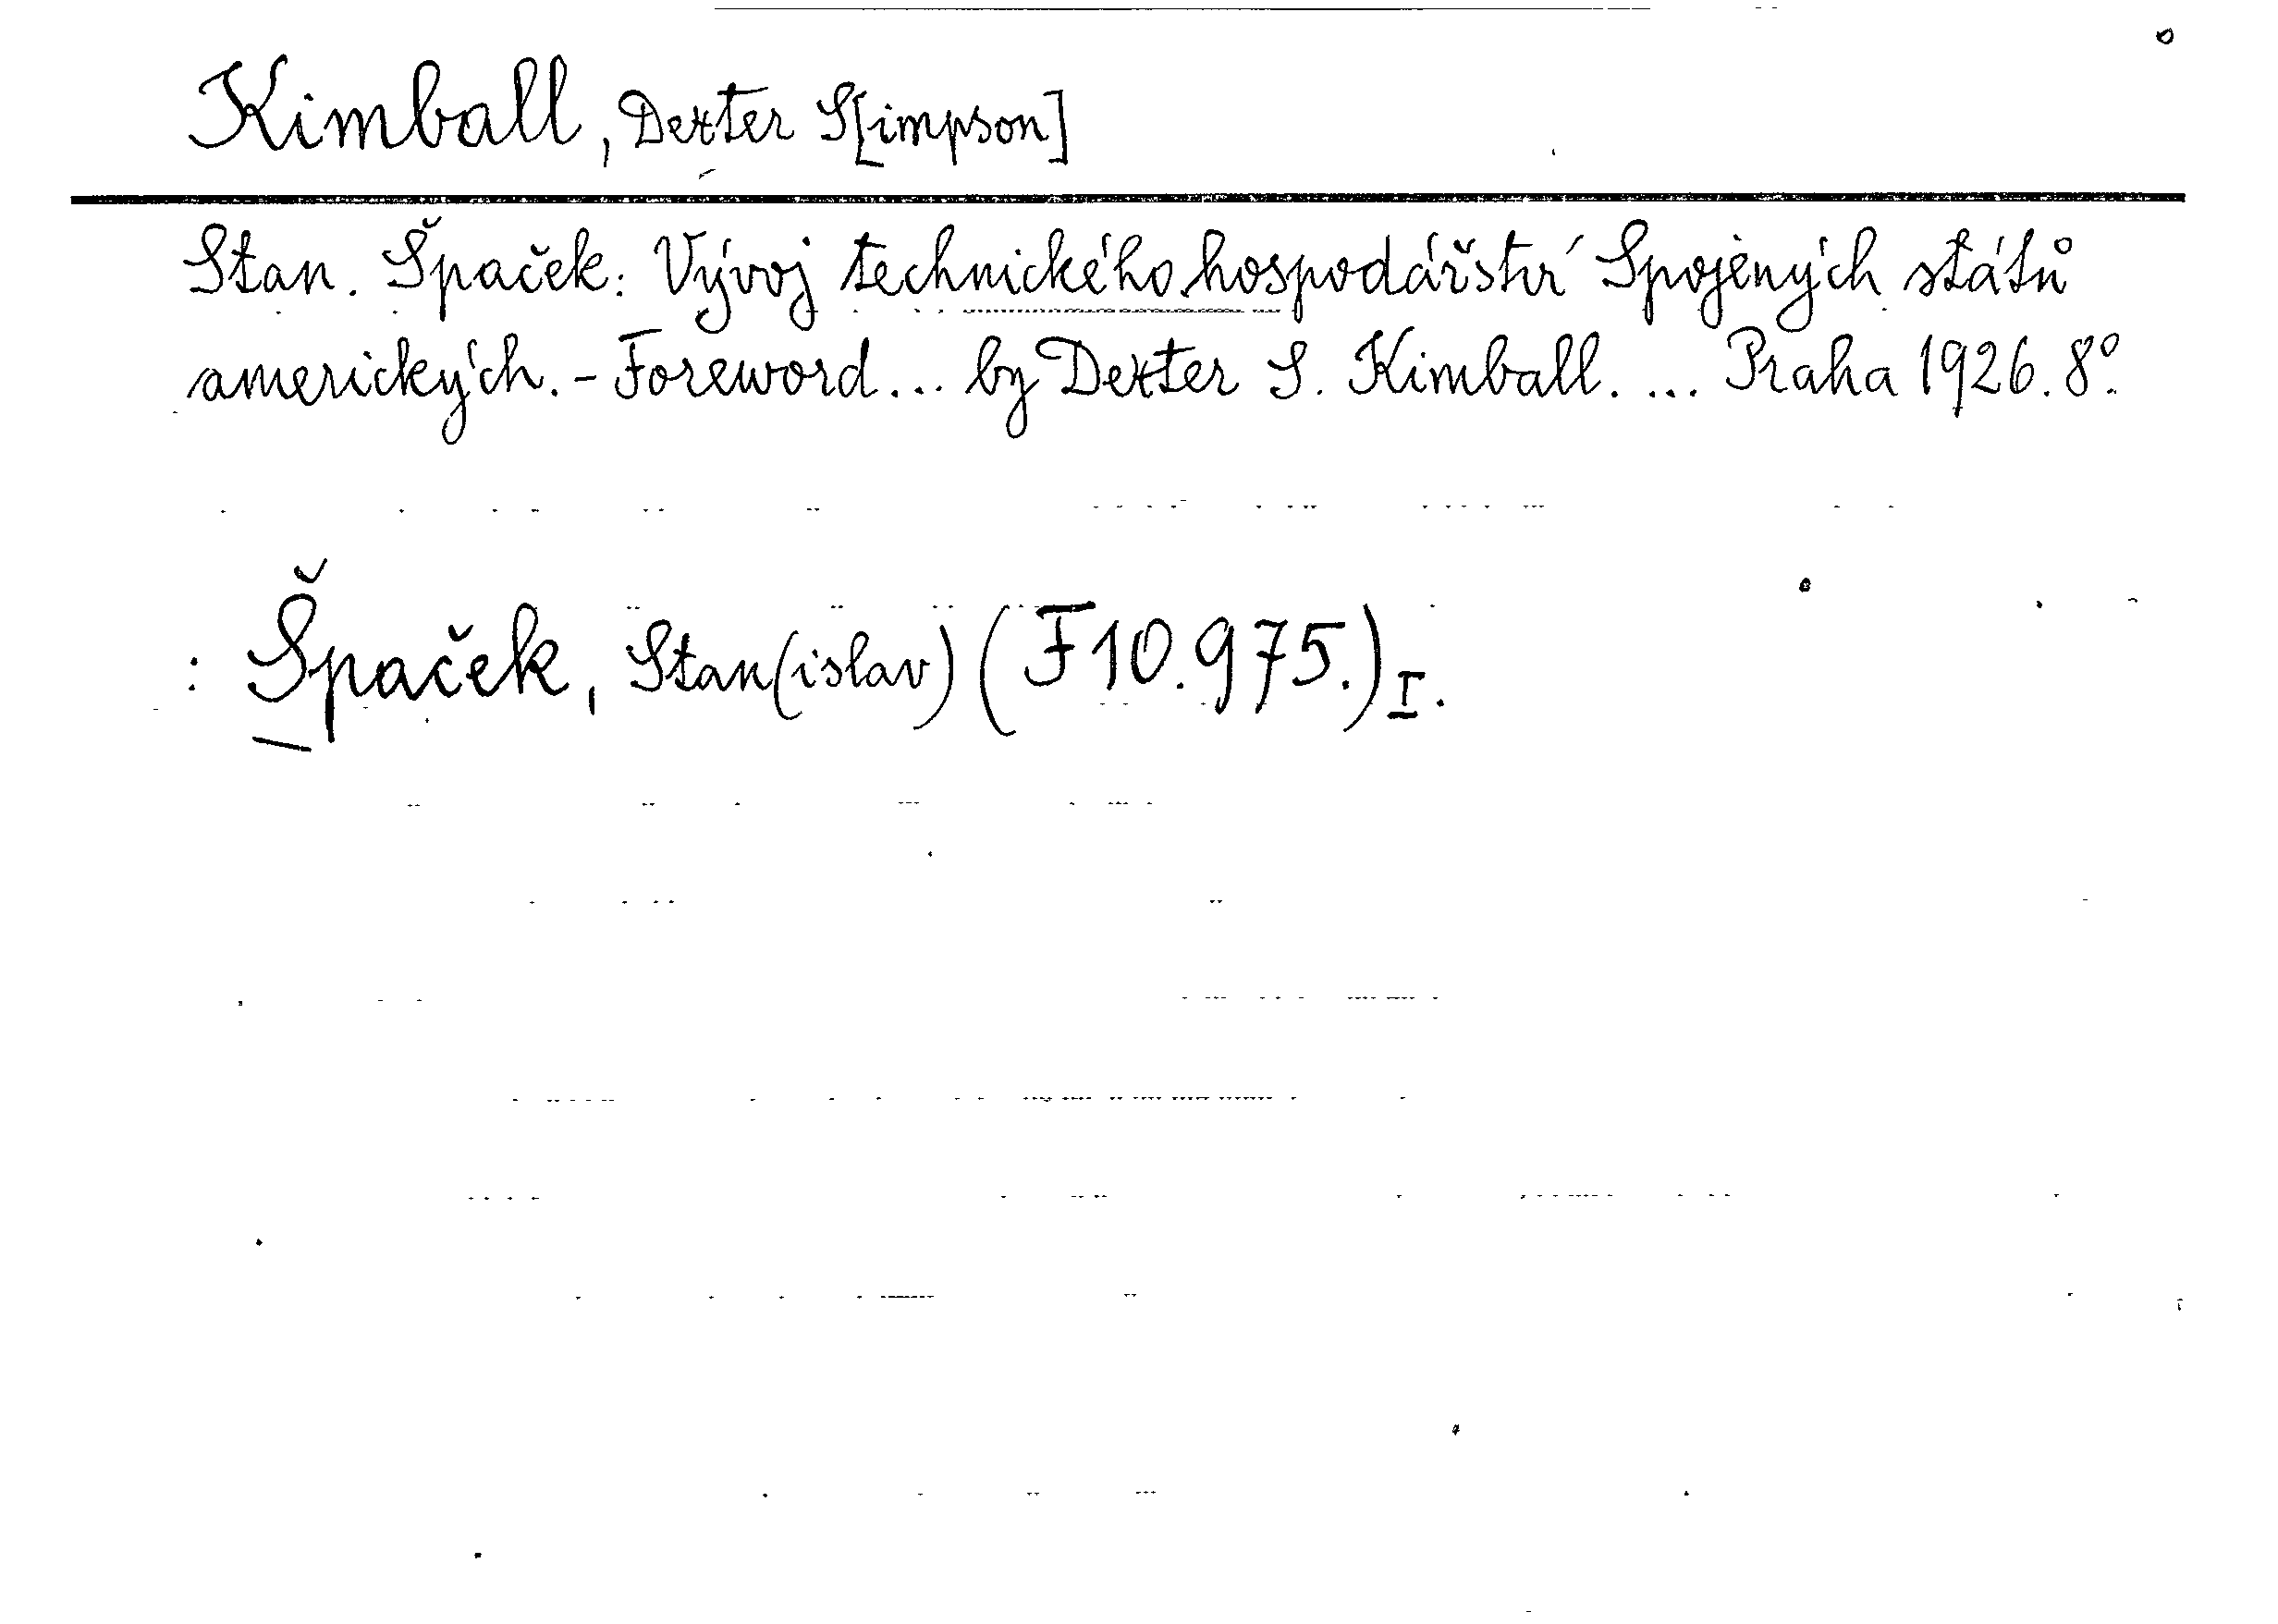 Kimball, Dexter S[impson]
Stan. Špaček: Vývoj technického hospodářství Spojených států
amerických. - Foreword... by Dexter S. Kimball. ... Praha 1926. 8°.
: Špaček, Stan(islav) (F10.975.) I.